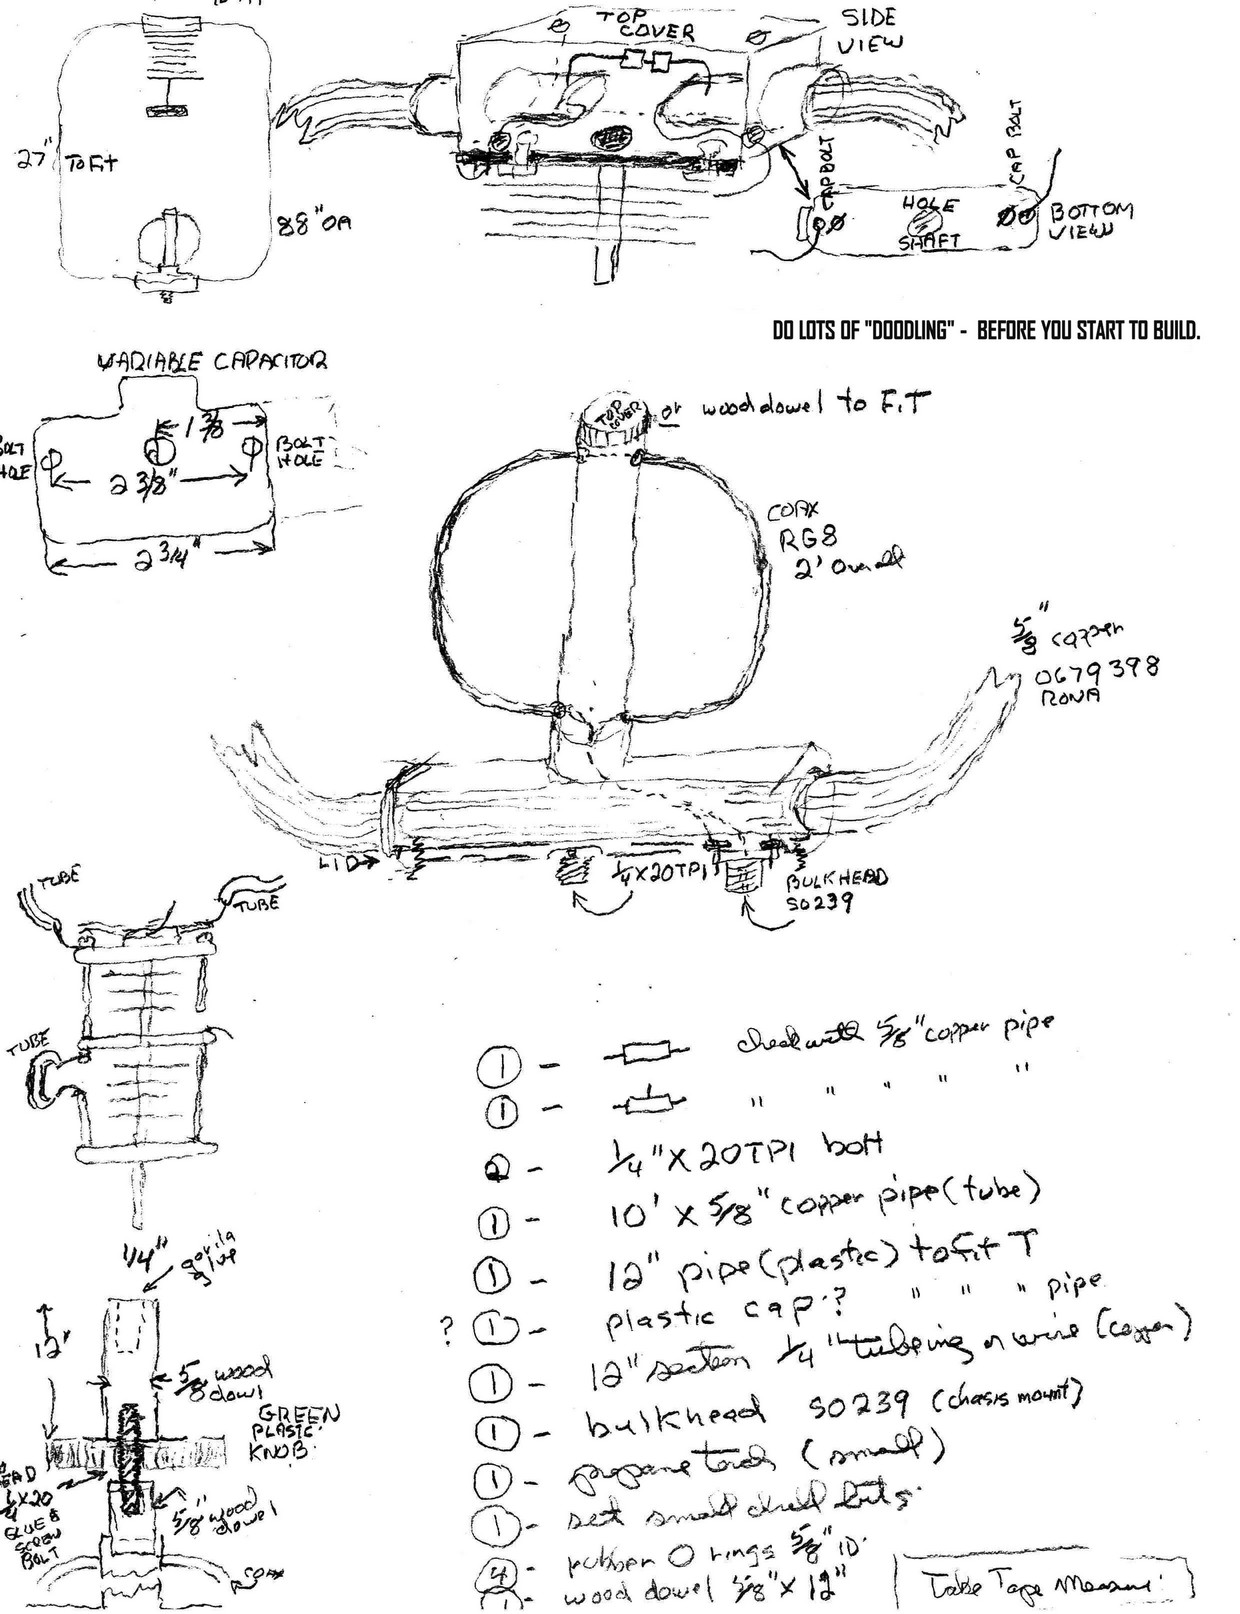 TOP
COVER
SIDE
VIEW
27"
TO Fit
88" OA
CAP BOLT
CAP BOLT
HOLE
SHAFT
BOTTOM
VIEW
DO LOTS OF "DOODLING" - BEFORE YOU START TO BUILD.
VARIABLE CAPACITOR
1 3/8
BOLT
HOLE
2 3/8"
2 3/4"
TOP
COVER
or wood dowel to FIT
COAX
RG8
2' Overall
5/8" copper
0679398
RONA
LID
1/4 X 20 TPI
BULKHEAD
SO239
TUBE
TUBE
TUBE
1 - check with 5/8" copper pipe
1 - " " " "
2 - 1/4" X 20TPI bolt
1 - 10' X 5/8" copper pipe (tube)
1 - 12" pipe (plastic) to Fit T
? 1 - plastic cap ? " " " pipe
1 - 12" section 1/4" tubeing or wire (copper)
1 - bulkhead SO239 (chasis mount)
1 - propane torch (small)
1 - set small drill bits
4 - rubber O rings 5/8" ID.
1 - wood dowel 5/8" X 12"
Take Tape Measure!
1/4"
gorila
glue
12"
5/8 wood
dowl
GREEN
PLASTIC
KNOB
1/4 X 20
GLUE &
SCREW
BOLT
5/8" wood
dowel
COAX